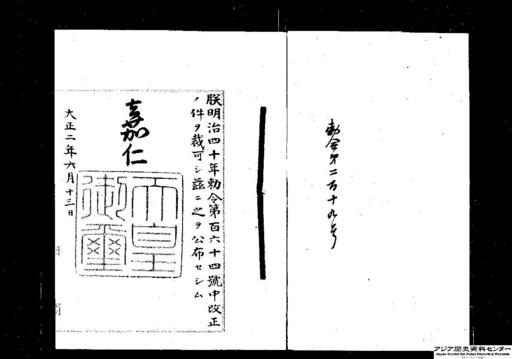 勅令第二百十九号
朕明治四十年勅令第百六十四號中改正
ノ件ヲ裁可シ茲ニ之ヲ公布セシム
嘉仁
天皇
御璽
大正二年六月十三日
アジア歴史資料センター
Japan Center for Asian Historical Records